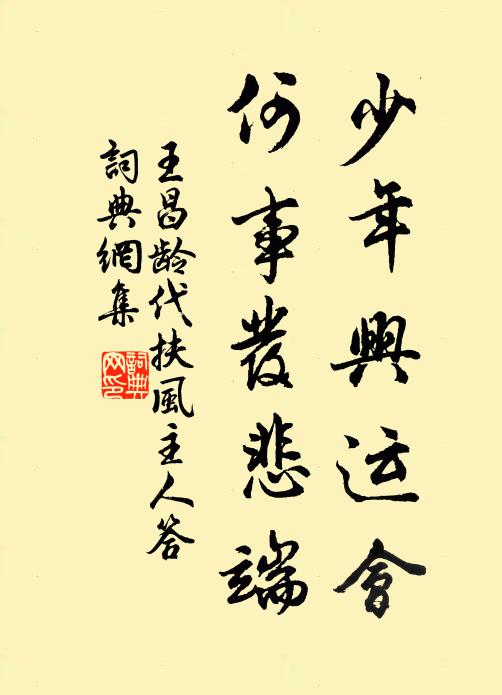 少年興运會
何事發悲端
王昌龄代扶風主人答
詞典網集
詞典网印